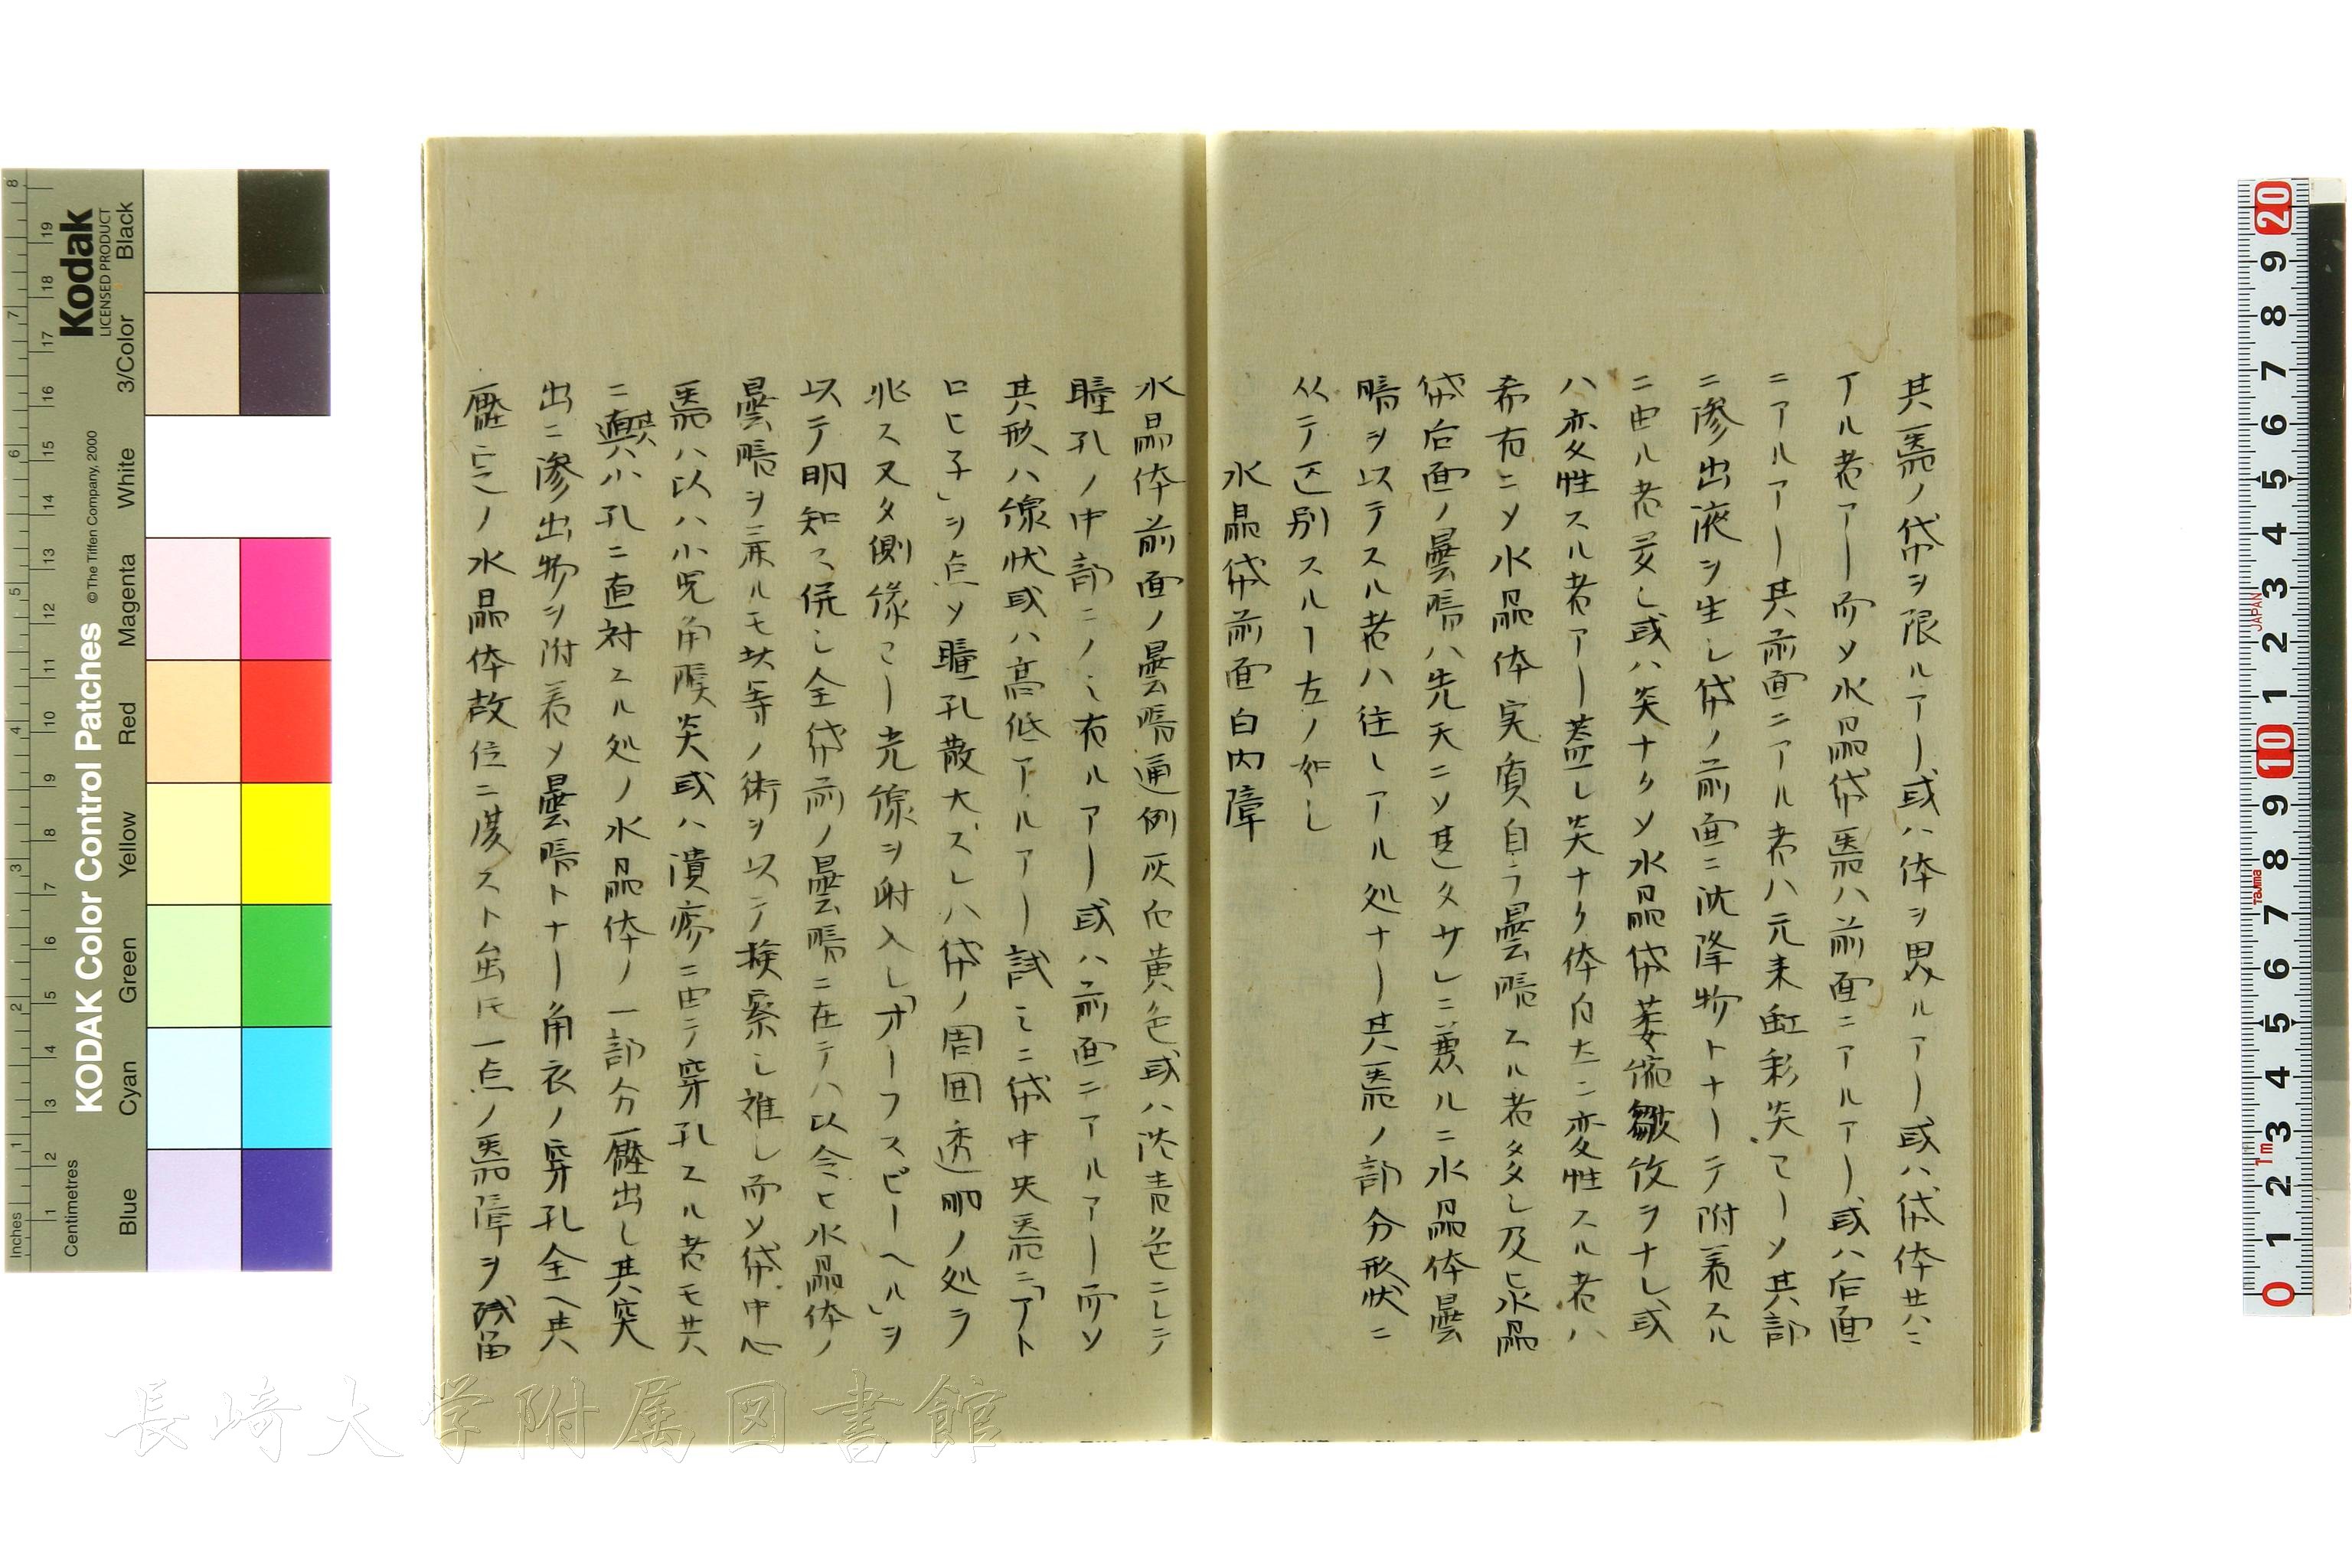 其翳ノ袋ヲ限ルアー或ハ体ヲ界ルアー或ハ袋体共ニ
アル者アー而ソ水晶袋翳ハ前面ニアルアー或ハ后面
ニアルアー其前面ニアル者ハ元来虹彩炎マーソ其部
ニ滲出液ヲ生し袋ノ前面ニ沈降物トナーテ附着スル
ニ由ル者多し或ハ炎ナクソ水晶袋萎縮皺攸ヲナし或
ハ変性スル者アー蓋し炎ナク体自ニ変性スル者ハ
希有ニソ水晶体実質自ラ曇暗スル者多し及ヒ水晶
袋后面ノ曇暗ハ先天ニソ ニ兼ルニ水晶体曇
暗ヲ以テスル者ハ往しアル処ナー其翳ノ部分形状ニ
从テ区別スルー左ノ如し
水晶袋前面白内障
水晶体前面ノ曇暗通例灰白黄色或ハ沈青色ニレテ
瞳孔ノ中部ニノミ有ルアー或ハ前面ニアルアー而ソ
其形ハ線状或ハ高低アルアー試ミニ袋中央翳ニ「アト
ロヒ子」ヲ点ソ瞳孔散大スレハ袋ノ周囲透明ノ処ラ
兆ス又タ側傍マー光線ヲ射入し「オーフスピーヘル」ヲ
以テ明知ス 全袋前ノ曇暗ニ在テハ以令ヒ水晶体ノ
曇暗ヲ兼ルモ 等ノ術ヲ以テ検案し難し而ソ袋中心
翳ハ以ハ小児角膜炎或ハ潰瘍ニ由テ穿孔スル者モ共
ニ其小孔ニ直対スル処ノ水晶体ノ一部分壓出し其突
出ニ滲出物ヲ附着ソ曇暗トナー角衣ノ穿孔全ヘ其
壓定ノ水晶体故位ニ復スト 一点ノ翳障ヲ残留
長崎大学附属図書館
KODAK Color Control Patches
© The Tiffen Company, 2000
Kodak
LICENSED PRODUCT
Inches
Centimetres
Blue
Cyan
Green
Yellow
Red
Magenta
White
3/Color
Black
JAPAN
Tajima
1m